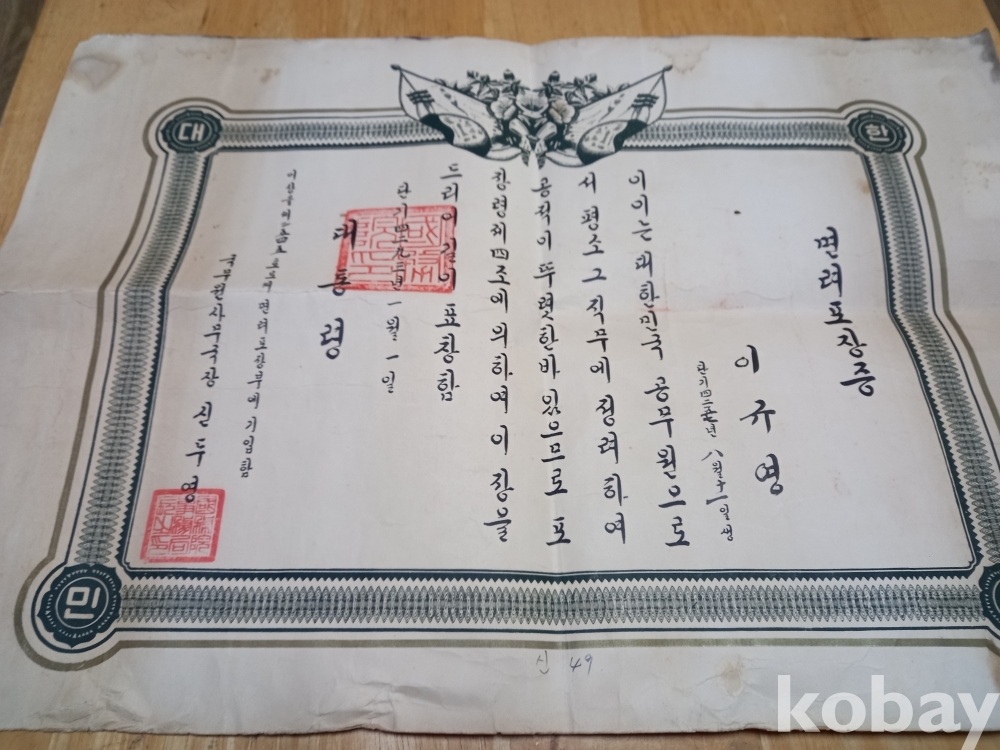 대
한
민
면려포장증
이규영
단기四二 년 八월十一일생
이이는 대한민국 공무원으로
서 평소 그 직무에 정려하여
공적이 뚜렷한바 있으므로 포
장령제四조에 의하여 이 장을
드리어 길이 표창함
단기四二九 년 一월一일
대통령
호로서 면려포장부에 기입함
국무원사무국장 신두영
신 49
kobay